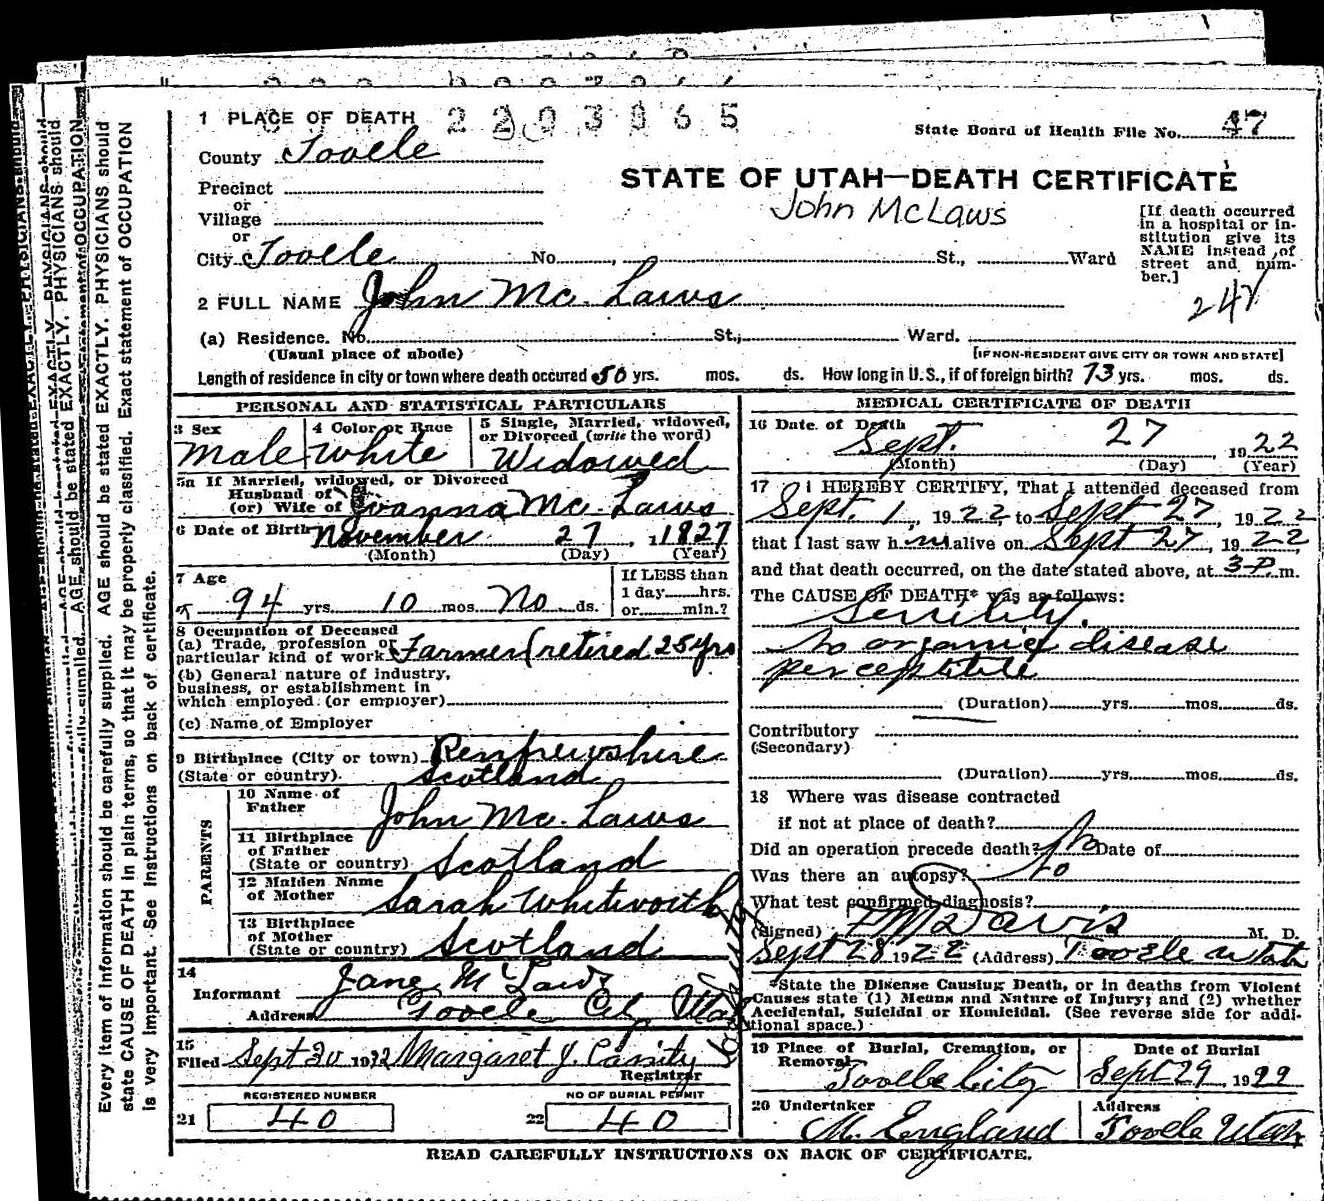 1 PLACE OF DEATH 2203865
State Board of Health File No. 47
County Tooele
STATE OF UTAH—DEATH CERTIFICATE
Precinct
or
Village
or
John McLaws
[If death occurred in a hospital or institution give its NAME instead of street and number.]
City Tooele No. , St., Ward
2 FULL NAME John Mc. Laws
247
(a) Residence. No. St., Ward.
(Usual place of abode) [IF NON-RESIDENT GIVE CITY OR TOWN AND STATE]
Length of residence in city or town where death occured 50 yrs. mos. ds. How long in U.S., if of foreign birth? 73 yrs. mos. ds.
PERSONAL AND STATISTICAL PARTICULARS
3 Sex 4 Color or Race 5 Single, Married, widowed,
or Divorced (write the word)
Male White Widowed
5a If Married, widowed, or Divorced
Husband of
(or) Wife of Joanna Mc. Laws
6 Date of Birth November 27, 1827
(Month) (Day) (Year)
7 Age If LESS than
94 yrs. 10 mos. No ds. 1 day hrs.
or min.?
8 Occupation of Deceased
(a) Trade, profession or
particular kind of work Farmer (retired 25 yrs
(b) General nature of industry,
business, or establishment in
which employed (or employer)
(c) Name of Employer
9 Birthplace (City or town) Renfrewshire
(State or country) Scotland
PARENTS
10 Name of
Father John Mc. Laws
11 Birthplace
of Father
(State or country) Scotland
12 Maiden Name
of Mother Sarah Whitworth
13 Birthplace
of Mother
(State or country) Scotland
14
Informant Jane McLaws
Address Tooele City Utah
15
Filed Sept 30 1922 Margaret J.
Registrar
REGISTERED NUMBER NO OF BURIAL PERMIT
21 40 22 40
MEDICAL CERTIFICATE OF DEATH
16 Date of Death
Sept. 27, 1922
(Month) (Day) (Year)
17 I HEREBY CERTIFY, That I attended deceased from
Sept. 1, 1922 to Sept 27, 1922
that I last saw him alive on Sept 27, 1922,
and that death occurred, on the date stated above, at 3-P. m.
The CAUSE OF DEATH* was as follows:
Senility.
No organic disease
perceptible
(Duration) yrs. mos. ds.
Contributory
(Secondary)
(Duration) yrs. mos. ds.
18 Where was disease contracted
if not at place of death?
Did an operation precede death? No Date of
Was there an autopsy? No
What test confirmed diagnosis?
(Signed) F M Davis M. D.
Sept 28 1922 (Address) Tooele Utah
*State the Disease Causing Death, or in deaths from Violent
Causes state (1) Means and Nature of Injury; and (2) whether
Accidental, Suicidal or Homicidal. (See reverse side for addi-
tional space.)
19 Place of Burial, Cremation, or Date of Burial
Removal
Tooele City Sept 29, 1922
20 Undertaker Address
M. England Tooele Utah
READ CAREFULLY INSTRUCTIONS ON BACK OF CERTIFICATE.
Every item of information should be carefully supplied. AGE should be stated EXACTLY. PHYSICIANS should
state CAUSE OF DEATH in plain terms, so that it may be properly classified. Exact statement of OCCUPATION
is very important. See instructions on back of certificate.